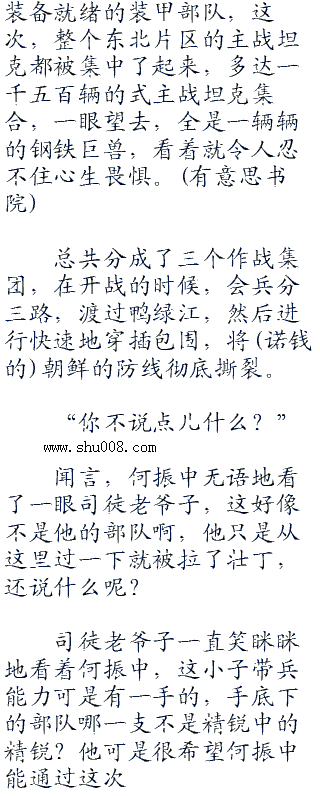 装备就绪的装甲部队，这
次，整个东北片区的主战坦
克都被集中了起来，多达一
千五百辆的式主战坦克集
合，一眼望去，全是一辆辆
的钢铁巨兽，看着就令人忍
不住心生畏惧。(有意思书
院)
总共分成了三个作战集
团，在开战的时候，会兵分
三路，渡过鸭绿江，然后进
行快速地穿插包围，将(诺钱
的)朝鲜的防线彻底撕裂。
“你不说点儿什么？”
www.shu008.com
闻言，何振中无语地看
了一眼司徒老爷子，这好像
不是他的部队啊，他只是从
这里过一下就被拉了壮丁，
还说什么呢？
司徒老爷子一直笑眯眯
地看着何振中，这小子带兵
能力可是有一手的，手底下
的部队哪一支不是精锐中的
精锐？他可是很希望何振中
能通过这次